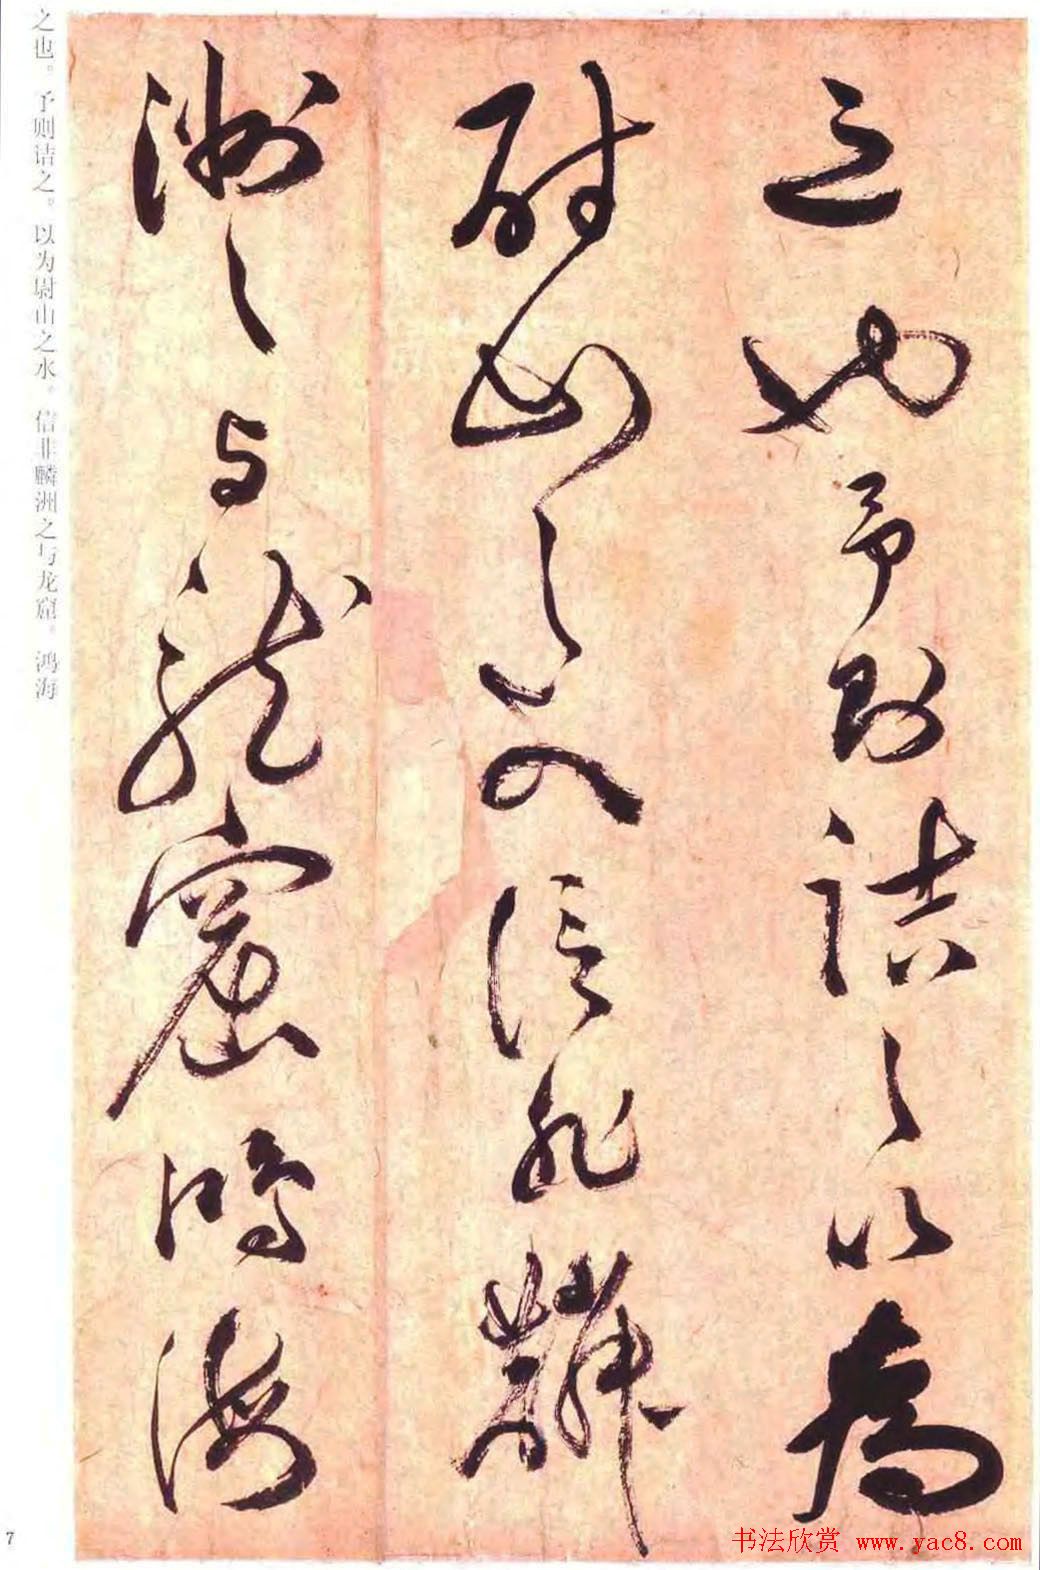 之也予則詰之以為
尉山之水信非麟
洲之与龍窟鴻海
之也。予则诘之。以为尉山之水。信非麟洲之与龙窟。鸿海
7
书法欣赏 www.yac8.com